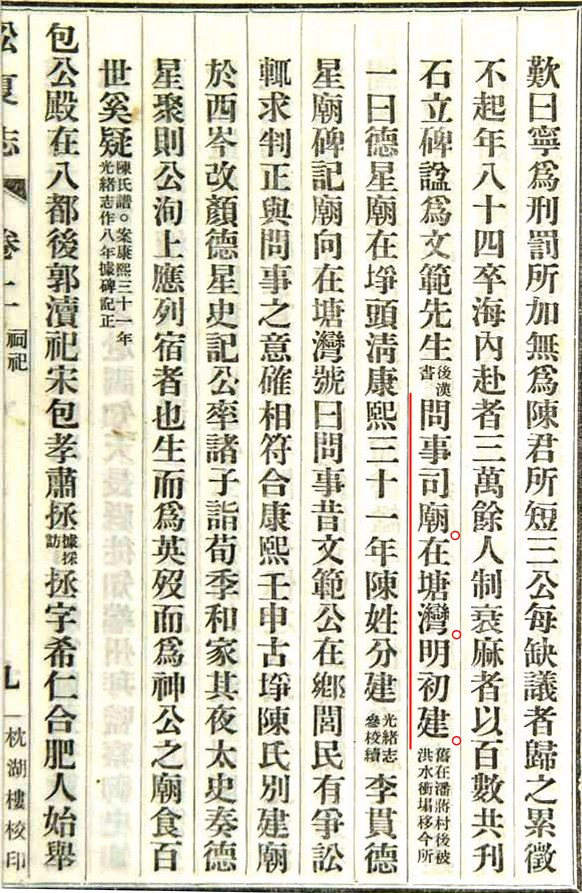 歎曰寧爲刑罰所加無爲陳君所短三公每缺議者歸之累徵
不起年八十四卒海內赴者三萬餘人制衰麻者以百數共刋
石立碑諡爲文範先生後漢書問事司廟。在塘灣。明初建。舊在潘蔣村後被洪水衝塌移今所
一曰德星廟在埩頭清康熙三十一年陳姓分建光緒志叅校續李貫德
星廟碑記廟向在塘灣號曰問事昔文範公在鄉閭民有爭訟
輒求判正與問事之意確相符合康熙壬申古埩陳氏別建廟
於西岑改顏德星史記公率諸子詣荀季和家其夜太史奏德
星聚則公洵上應列宿者也生而爲英歿而爲神公之廟食百
世奚疑陳氏譜。案康熙三十一年光緒志作八年據碑記正
包公殿在八都後郭瀆祀宋包孝肅拯據採訪拯字希仁合肥人始舉
松夏志 卷二 祠祀 九 枕湖樓校印